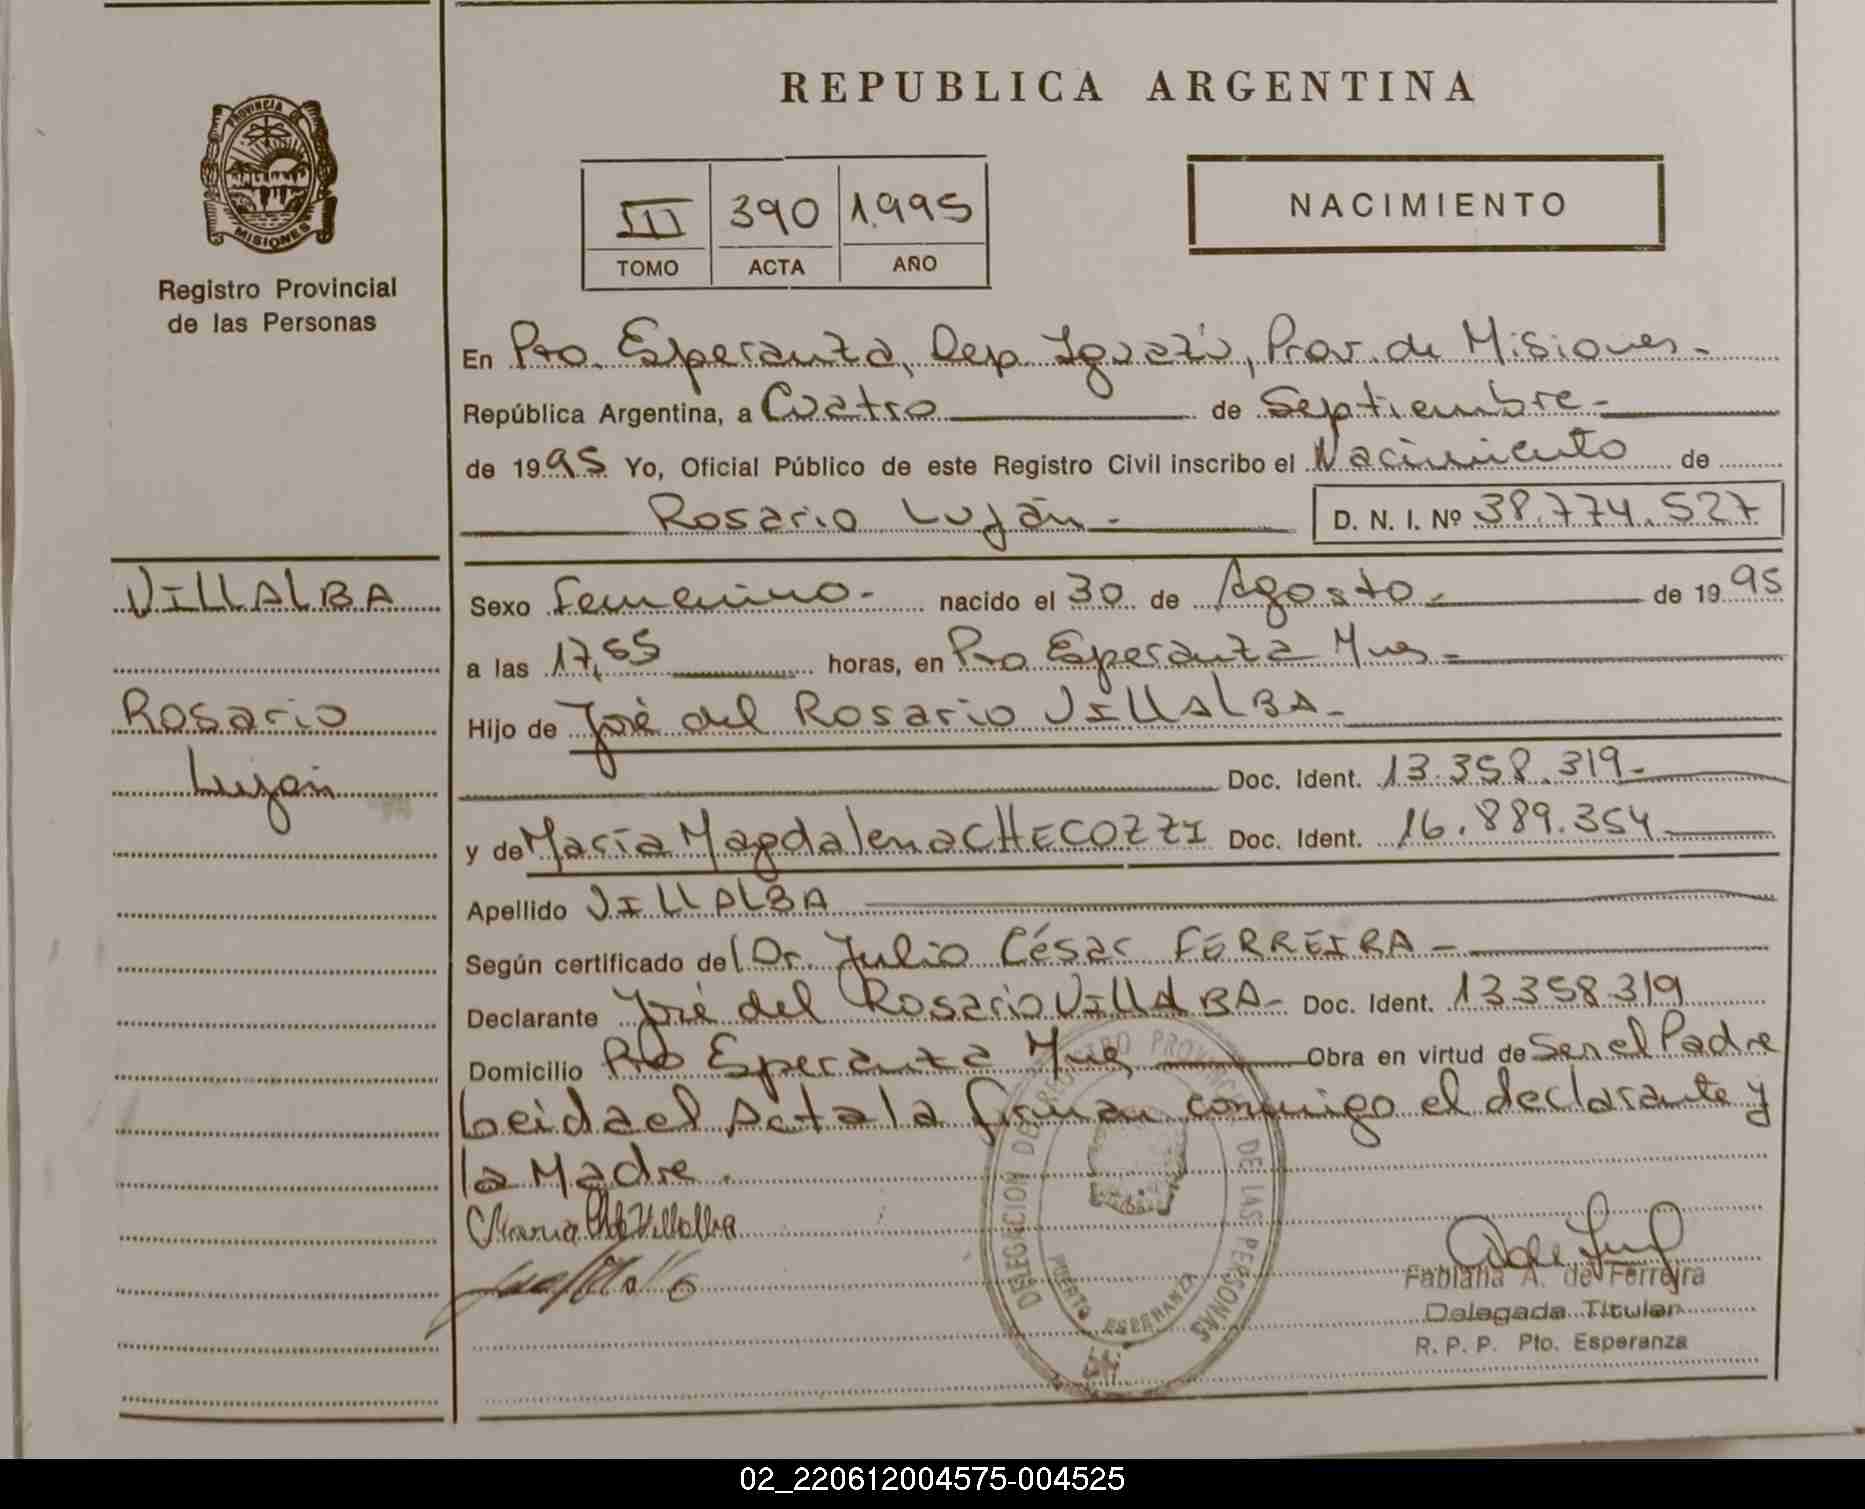 REPUBLICA ARGENTINA
PROVINCIA DE MISIONES
Registro Provincial
de las Personas
III 390 1.995
TOMO ACTA AÑO
NACIMIENTO
En Pto. Esperanza, Dep Iguazú, Prov. de Misiones.
República Argentina, a Cuatro de Septiembre
de 1995 Yo, Oficial Público de este Registro Civil inscribo el Nacimiento de
Rosario Luján D. N. I. Nº 38.774.527
VILLALBA
Rosario
Luján
Sexo Femenino nacido el 30 de Agosto de 1995
a las 17,55 horas, en Pto Esperanza Mnes
Hijo de José del Rosario VILLALBA
Doc. Ident. 13.358.319
y de María Magdalena CHECOZZI Doc. Ident. 16.889.354
Apellido VILLALBA
Según certificado del Dr. Julio César FERREIRA
Declarante José del Rosario VILLALBA Doc. Ident. 13358319
Domicilio Pto Esperanza Mnes Obra en virtud de Ser el Padre
Leida el Acta la firman conmigo el declarante y
la Madre.
Maria de Villalba
DELEGACION DE REGISTRO PROVINCIAL DE LAS PERSONAS
PUERTO ESPERANZA
Fabiana A. de Ferreira
Delegada Titular
R. P. P. Pto. Esperanza
02_220612004575-004525